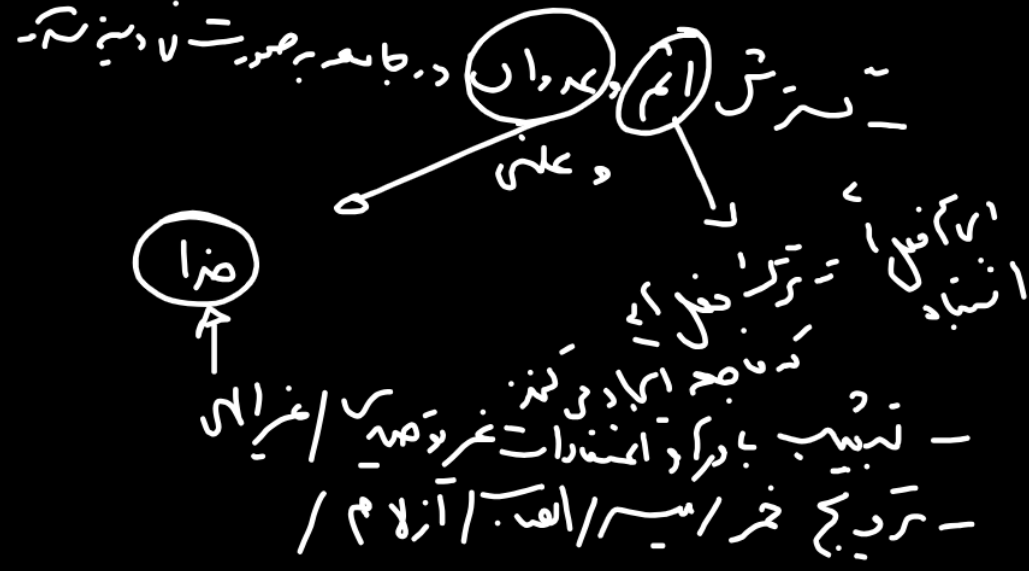 - گسترش اثم و عدوان در جامعه به صورت نهادینه شده
و علنی
انجام فعل
اشتباه
ترک فعل
که فاصله ایجاد می کند
ضرا
- تثبیت باورها و اعتقادات غیر توحیدی / غیر الهی
- ترویج خمر / میسر / انصاب / ازلام /